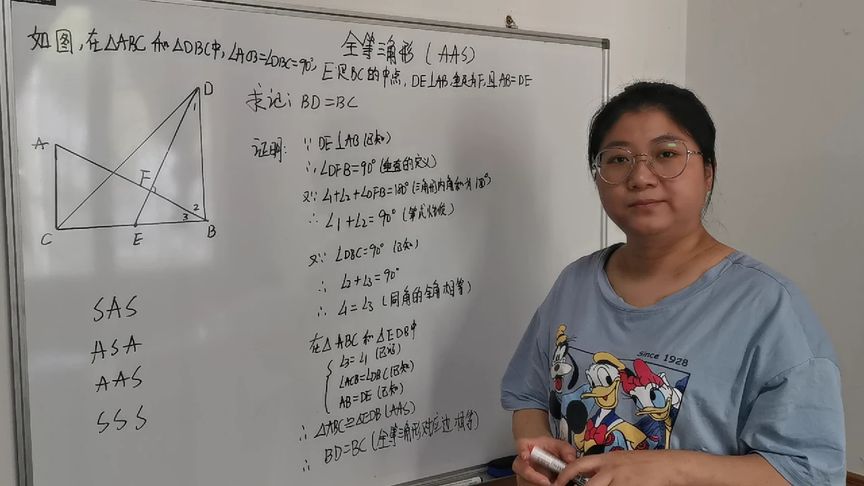 全等三角形（AAS）
如图，在△ABC 和△DBC中，∠ACB=∠DBC=90°，E是BC的中点，DE⊥AB，垂足为F，且AB=DE
求证：BD=BC
D
1
A
F
2
3
C
E
B
证明：∵ DE⊥AB（已知）
∴ ∠DFB=90°（垂直的定义）
又∵ ∠1+∠2+∠DFB=180°（三角形内角和为180°）
∴ ∠1+∠2=90°（等式性质）
又∵ ∠DBC=90°（已知）
∴ ∠2+∠3=90°
∴ ∠1=∠3（同角的余角相等）
在△ABC 和△EDB中
∠3=∠1（已证）
∠ACB=∠DBC（已知）
AB=DE（已知）
∴ △ABC≌△EDB（AAS）
∴ BD=BC（全等三角形对应边相等）
SAS
ASA
AAS
SSS
since 1928